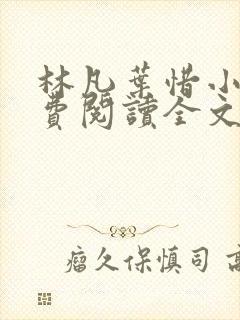 林凡葉惜小
費閱讀全文
瘤久保慎司 高